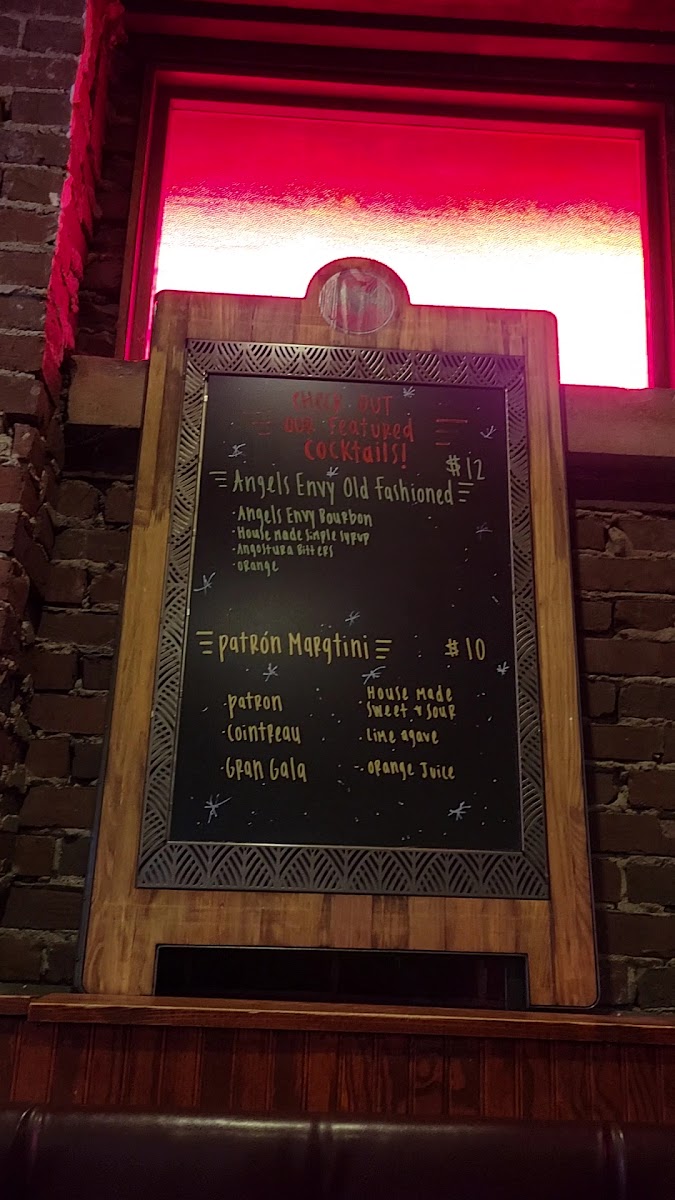 CHECK OUT
OUR Featured
COCKtails!
$12
Angels Envy Old Fashioned
· Angels Envy Bourbon
· House Made Simple Syrup
· Angostura Bitters
· Orange
Patrón Margtini $10
· Patron
· Cointreau
· Gran Gala
· House Made
Sweet & Sour
· Lime agave
· Orange Juice